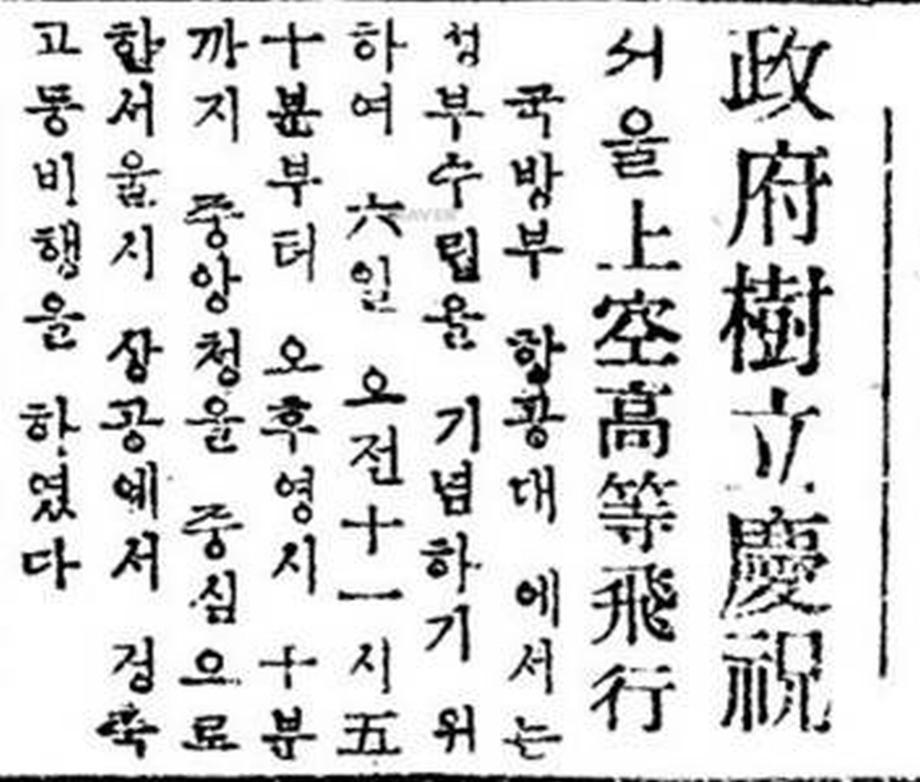 政府樹立慶祝
서울上空高等飛行
국방부 항공대 에서는
정부수립을 기념하기 위
하여 六일 오전十一시五
十분부터 오후영시 十분
까지 중앙청을 중심으로
한서울시 상공에서 경축
고등비행을 하였다